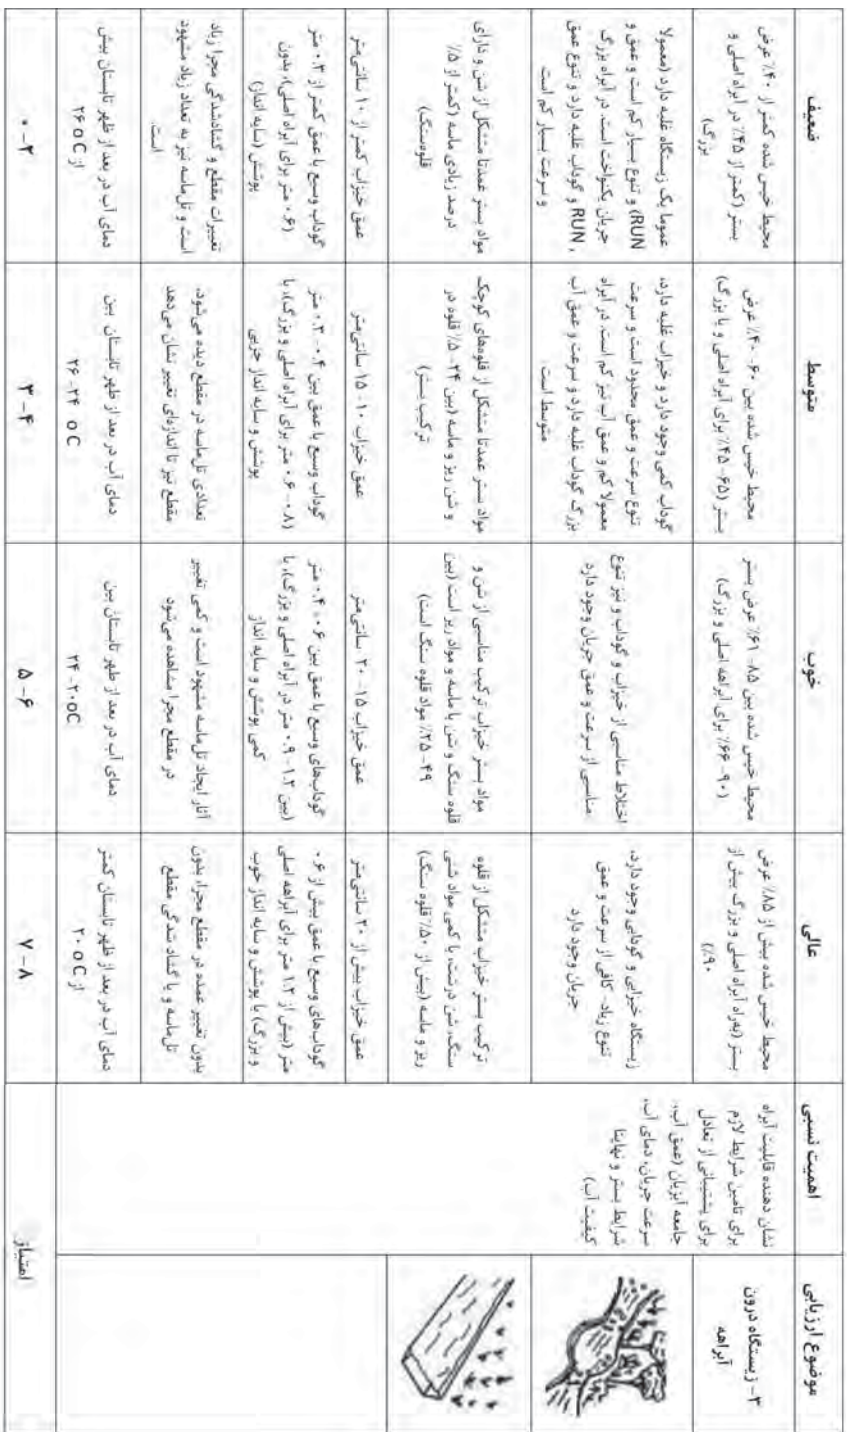 موضوع ارزیابی
اهمیت نسبی
عالی
خوب
متوسط
ضعیف
۳- زیستگاه درون
آبراهه
نشان دهنده قابلیت آبراه
برای تامین شرایط لازم
برای پشتیبانی از تعادل
جامعه آبزیان (عمق آب،
سرعت جریان، دمای آب،
شرایط بستر و نهایتا
کیفیت آب).
محیط خیس شده بیش از ۸۵٪ عرض
بستر (به‌راه آبراه اصلی و بزرگ بیش از
۹۰٪)
محیط خیس شده بین ۸۵- ۶۱٪ عرض بستر
(۹۰- ۶۶٪ برای آبراهه اصلی و بزرگ)
محیط خیس شده بین ۶۰- ۴۰٪ عرض
بستر (۶۵- ۴۵٪ برای آبراه اصلی و یا بزرگ)
محیط خیس شده کمتر از ۴۰٪ عرض
بستر (کمتر از ۴۵٪ در آبراه اصلی و
بزرگ)
زیستگاه خیزابی و گودابی وجود دارد،
تنوع زیاد- کافی از سرعت و عمق
جریان وجود دارد
اختلاط مناسبی از خیزاب و گوداب و نیز تنوع
مناسبی از سرعت و عمق جریان وجود دارد
گوداب کمی وجود دارد و خیزاب غلبه دارد،
تنوع سرعت و عمق محدود است و سرعت
معمولا کم و عمق آب نیز کم است. در آبراه
بزرگ گوداب غلبه دارد و سرعت و عمق آب
متوسط است.
عموما یک زیستگاه غلبه دارد (معمولا
RUN) و تنوع بسیار کم است و عمق و
جریان یکنواخت است. در آبراه بزرگ
RUN و گوداب غلبه دارد و تنوع عمق
و سرعت بسیار کم است
ترکیب بستر خیزاب متشکل از قلوه
سنگ، شن درشت، با کمی مواد شنی
ریز و ماسه (بیش از ۵۰٪ قلوه سنگ)
مواد بستر خیزاب ترکیب مناسبی از شن و
قلوه سنگ و شن با ماسه و مواد ریز است (بین
۴۹- ۲۵٪ مواد قلوه سنگ است)
مواد بستر عمدتا متشکل از قلوه‌های کوچک
و شن ریز و ماسه (بین ۲۴- ۵٪ قلوه در
ترکیب بستر)
مواد بستر عمدتا متشکل از شن و دارای
درصد زیادی ماسه (کمتر از ۵٪
قلوه‌سنگ)
عمق خیزاب بیش از ۲۰ سانتی‌متر
عمق خیزاب ۱۵- ۲۰ سانتی‌متر
عمق خیزاب ۱۰- ۱۵ سانتی‌متر
عمق خیزاب کمتر از ۱۰ سانتی‌متر
گوداب‌های وسیع با عمق بیش از ۰.۶
متر (بیش از ۱.۲ متر برای آبراهه اصلی
و بزرگ) با پوشش و سایه انداز خوب
گوداب‌های وسیع با عمق بین ۰.۶- ۰.۴ متر
(بین ۱.۲- ۰.۹ متر در آبراه اصلی و بزرگ)، با
کمی پوشش و سایه انداز
گوداب وسیع با عمق بین ۰.۴- ۰.۳ متر
(۰.۸- ۰.۶ متر برای آبراه اصلی و بزرگ)، با
پوشش و سایه انداز جزیی
گوداب وسیع با عمق کمتر از ۰.۳ متر
(۰.۶ متر برای آبراه اصلی)، بدون
پوشش (سایه انداز)
بدون تغییر عمده در مقطع مجرا، بدون
تل‌ماسه و یا گشاد شدگی مقطع
آثار ایجاد تل‌ماسه مشهود است و کمی تغییر
در مقطع مجرا مشاهده می‌شود
تعدادی تل‌ماسه در مقطع دیده می‌شود،
مقطع نیز تا اندازه‌ای تغییر نشان می‌دهد
تغییرات مقطع و گشادشدگی مجرا زیاد
است و تل‌ماسه نیز به تعداد زیاد مشهود
است.
دمای آب در بعد از ظهر تابستان کمتر
از ۲۰ o C
دمای آب در بعد از ظهر تابستان بین
۲۴-۲۰ oC
دمای آب در بعد از ظهر تابستان بین
۲۶-۲۴ o C
دمای آب در بعد از ظهر تابستان بیش
از ۲۶ o C
امتیاز
۷-۸
۵-۶
۳-۴
۰-۲